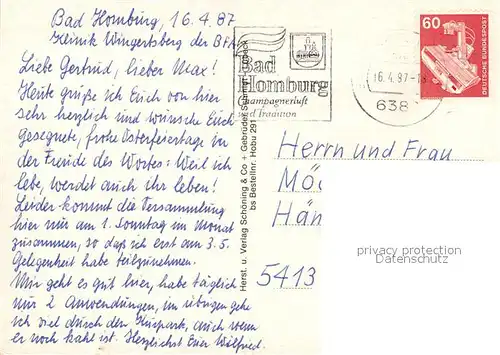 Bad Homburg, 16.4.87
Klinik Wingertsberg der BFA
Liebe Gertrud, lieber Max!
Heute grüße ich Euch von hier
sehr herzlich und wünsche Euch
gesegnete, frohe Osterfeiertage in
der Freude des Wortes: Weil ich
lebe, werdet auch ihr leben!
Leider kommt die Versammlung
hier nur am 1. Sonntag im Monat
zusammen, so daß ich erst am 3.5.
Gelegenheit habe teilzunehmen.
Mir geht es gut hier, habe täglich
nur 2 Anwendungen, im übrigen gehe
ich viel durch den Kurpark, auch wenn
er noch kahl ist. Herzlichst Euer Wilfried.
Herst. u. Verlag Schöning & Co + Gebrüder
bs Bestellnr. Hobu 291
Bad
Homburg
Champagnerluft
und Tradition
16.4.87-18
638
60
DEUTSCHE BUNDESPOST
Herrn und Frau
Mö
Hän
5413
privacy protection
Datenschutz